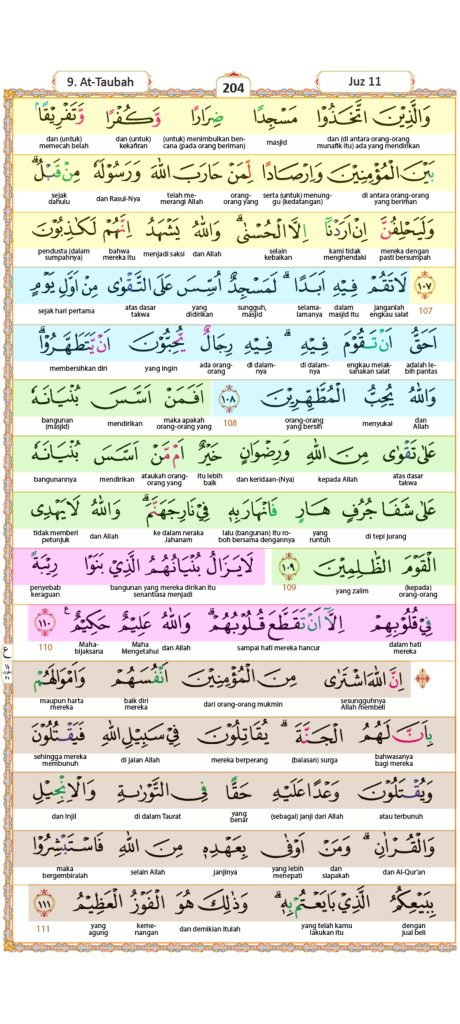 9. At-Taubah 204 Juz 11
وَالَّذِيْنَ اتَّخَذُوْا مَسْجِدًا ضِرَارًا وَّكُفْرًا وَّتَفْرِيْقًاۢ
dan (di antara orang-orang munafik itu) ada yang mendirikan masjid (untuk) menimbulkan bencana (pada orang beriman) dan (untuk) kekafiran dan (untuk) memecah belah
بَيْنَ الْمُؤْمِنِيْنَ وَاِرْصَادًا لِّمَنْ حَارَبَ اللّٰهَ وَرَسُوْلَهٗ مِنْ قَبْلُۗ
di antara orang-orang yang beriman serta (untuk) menunggu (kedatangan) orang-orang yang telah memerangi Allah dan Rasul-Nya sejak dahulu
وَلَيَحْلِفُنَّ اِنْ اَرَدْنَآ اِلَّا الْحُسْنٰىۗ وَاللّٰهُ يَشْهَدُ اِنَّهُمْ لَكٰذِبُوْنَ
mereka dengan pasti bersumpah kami tidak menghendaki selain kebaikan dan Allah menjadi saksi bahwa mereka itu pendusta (dalam sumpahnya)
١٠٧ لَا تَقُمْ فِيْهِ اَبَدًاۗ لَمَسْجِدٌ اُسِّسَ عَلَى التَّقْوٰى مِنْ اَوَّلِ يَوْمٍ
107 janganlah engkau salat dalam masjid itu selama-lamanya sungguh, masjid yang didirikan atas dasar takwa sejak hari pertama
اَحَقُّ اَنْ تَقُوْمَ فِيْهِۗ فِيْهِ رِجَالٌ يُّحِبُّوْنَ اَنْ يَّتَطَهَّرُوْاۗ
adalah lebih pantas engkau melaksanakan salat di dalamnya di dalamnya ada orang-orang yang ingin membersihkan diri
وَاللّٰهُ يُحِبُّ الْمُطَّهِّرِيْنَ ١٠٨ اَفَمَنْ اَسَّسَ بُنْيَانَهٗ
dan Allah menyukai orang-orang yang bersih 108 maka apakah orang-orang yang mendirikan bangunan (masjid)
عَلٰى تَقْوٰى مِنَ اللّٰهِ وَرِضْوَانٍ خَيْرٌ اَمْ مَّنْ اَسَّسَ بُنْيَانَهٗ
atas dasar takwa kepada Allah dan keridaan-(Nya) itu lebih baik ataukah orang-orang yang mendirikan bangunannya
عَلٰى شَفَا جُرُفٍ هَارٍ فَانْهَارَ بِهٖ فِيْ نَارِ جَهَنَّمَۗ وَاللّٰهُ لَا يَهْدِى
di tepi jurang yang runtuh lalu (bangunan) itu roboh bersama dengannya ke dalam neraka Jahanam dan Allah tidak memberi petunjuk
الْقَوْمَ الظّٰلِمِيْنَ ١٠٩ لَا يَزَالُ بُنْيَانُهُمُ الَّذِيْ بَنَوْا رِيْبَةً
(kepada) orang-orang yang zalim 109 bangunan yang mereka dirikan itu senantiasa menjadi penyebab keraguan
فِيْ قُلُوْبِهِمْ اِلَّآ اَنْ تَقَطَّعَ قُلُوْبُهُمْۗ وَاللّٰهُ عَلِيْمٌ حَكِيْمٌ ࣖ ١١٠
dalam hati mereka sampai hati mereka hancur dan Allah Maha-Mengetahui Maha-bijaksana 110
اِنَّ اللّٰهَ اشْتَرٰى مِنَ الْمُؤْمِنِيْنَ اَنْفُسَهُمْ وَاَمْوَالَهُمْ
sesungguhnya Allah membeli dari orang-orang mukmin baik diri mereka maupun harta mereka
بِاَنَّ لَهُمُ الْجَنَّةَۗ يُقَاتِلُوْنَ فِيْ سَبِيْلِ اللّٰهِ فَيَقْتُلُوْنَ
bahwasanya bagi mereka (balasan) surga mereka berperang di jalan Allah sehingga mereka membunuh
وَيُقْتَلُوْنَ وَعْدًا عَلَيْهِ حَقًّا فِى التَّوْرٰىةِ وَالْاِنْجِيْلِ
atau terbunuh (sebagai) janji dari Allah yang benar di dalam Taurat dan Injil
وَالْقُرْاٰنِۗ وَمَنْ اَوْفٰى بِعَهْدِهٖ مِنَ اللّٰهِ فَاسْتَبْشِرُوْا
dan Al-Qur'an dan siapakah yang lebih menepati janjinya selain Allah maka bergembiralah
بِبَيْعِكُمُ الَّذِيْ بَايَعْتُمْ بِهٖۗ وَذٰلِكَ هُوَ الْفَوْزُ الْعَظِيْمُ ١١١
dengan jual beli yang telah kamu lakukan itu dan demikian itulah kemenangan yang agung 111